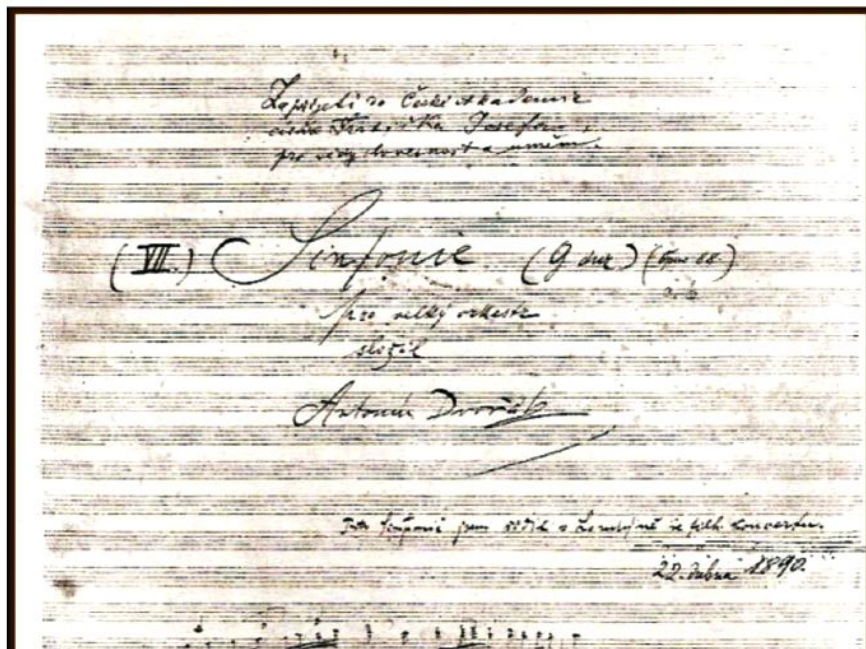 Za přijetí do České akademie
císaře Františka Josefa
pro vědy slovesnost a umění.
(VII.) Sinfonie (G dur) (Opus 88)
pro velký orkestr
složil
Antonín Dvořák
Tuto Sinfonii jsem řídil v Londýně ve filh. koncertu.
22. dubna 1890.